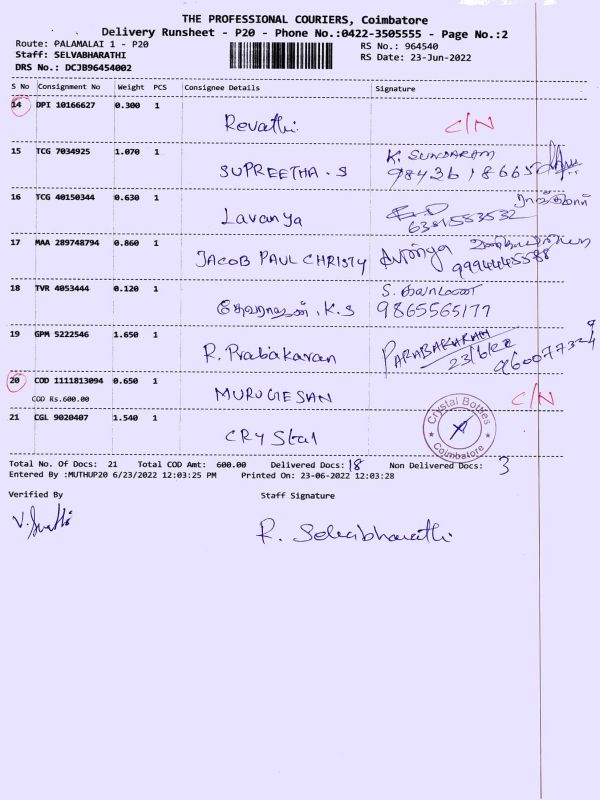 THE PROFESSIONAL COURIERS, Coimbatore
Delivery Runsheet - P20 - Phone No.:0422-3505555 - Page No.:2
Route: PALAMALAI 1 - P20 RS No.: 964540
Staff: SELVABHARATHI RS Date: 23-Jun-2022
DRS No.: DCJB96454002
S No Consignment No Weight PCS Consignee Details Signature
14 DPI 10166627 0.300 1
Revathi C/N
15 TCG 7034925 1.070 1 K. SUNDARAM
SUPREETHA . S 9843618665
16 TCG 40150344 0.630 1
Lavanya 6381583532
17 MAA 289748794 0.860 1
JACOB PAUL CHRISTY 9994445588
18 TVR 4053444 0.120 1
K.S 9865565177
19 GPM 5222546 1.650 1
R. Prabakaran PARABAKARAN
23/6/22
20 COD 1111813094 0.650 1
COD Rs.600.00 MURUGESAN C/N
21 CGL 9020407 1.540 1 Crystal Bottles
Crystal Coimbatore
Total No. Of Docs: 21 Total COD Amt: 600.00 Delivered Docs: 18 Non Delivered Docs: 3
Entered By :MUTHUP20 6/23/2022 12:03:25 PM Printed On: 23-06-2022 12:03:28
Verified By Staff Signature
R. Selvabharathi